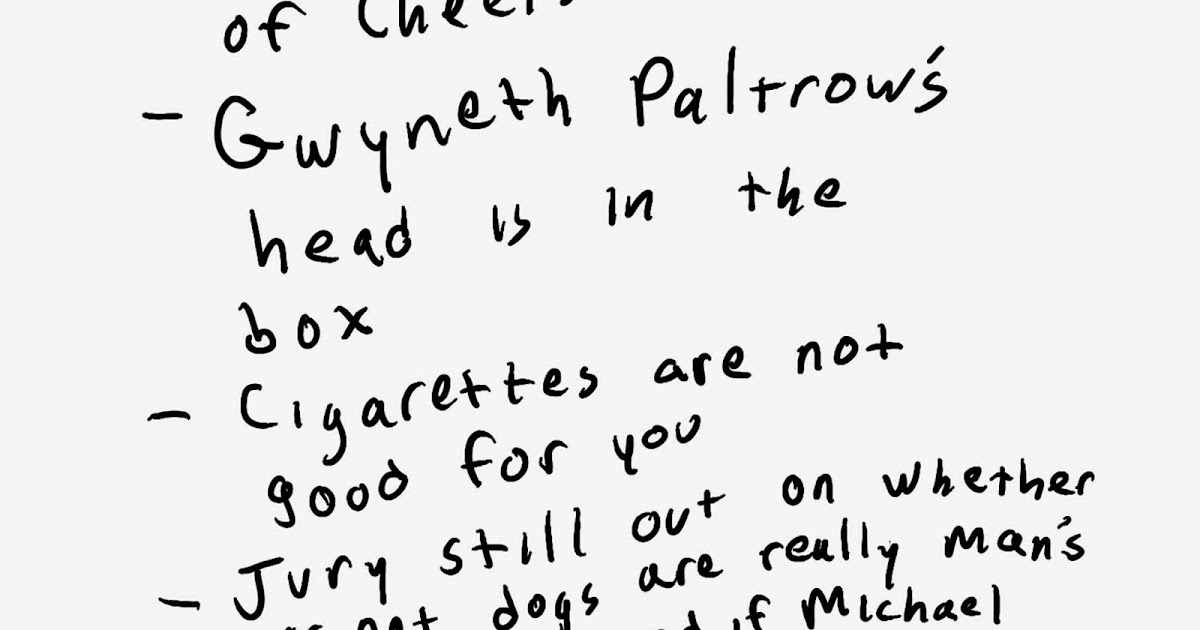 of Cheers
- Gwyneth Paltrow's
head is in the
box
- Cigarettes are not
good for you
- Jury still out on whether
or not dogs are really man's
if Michael